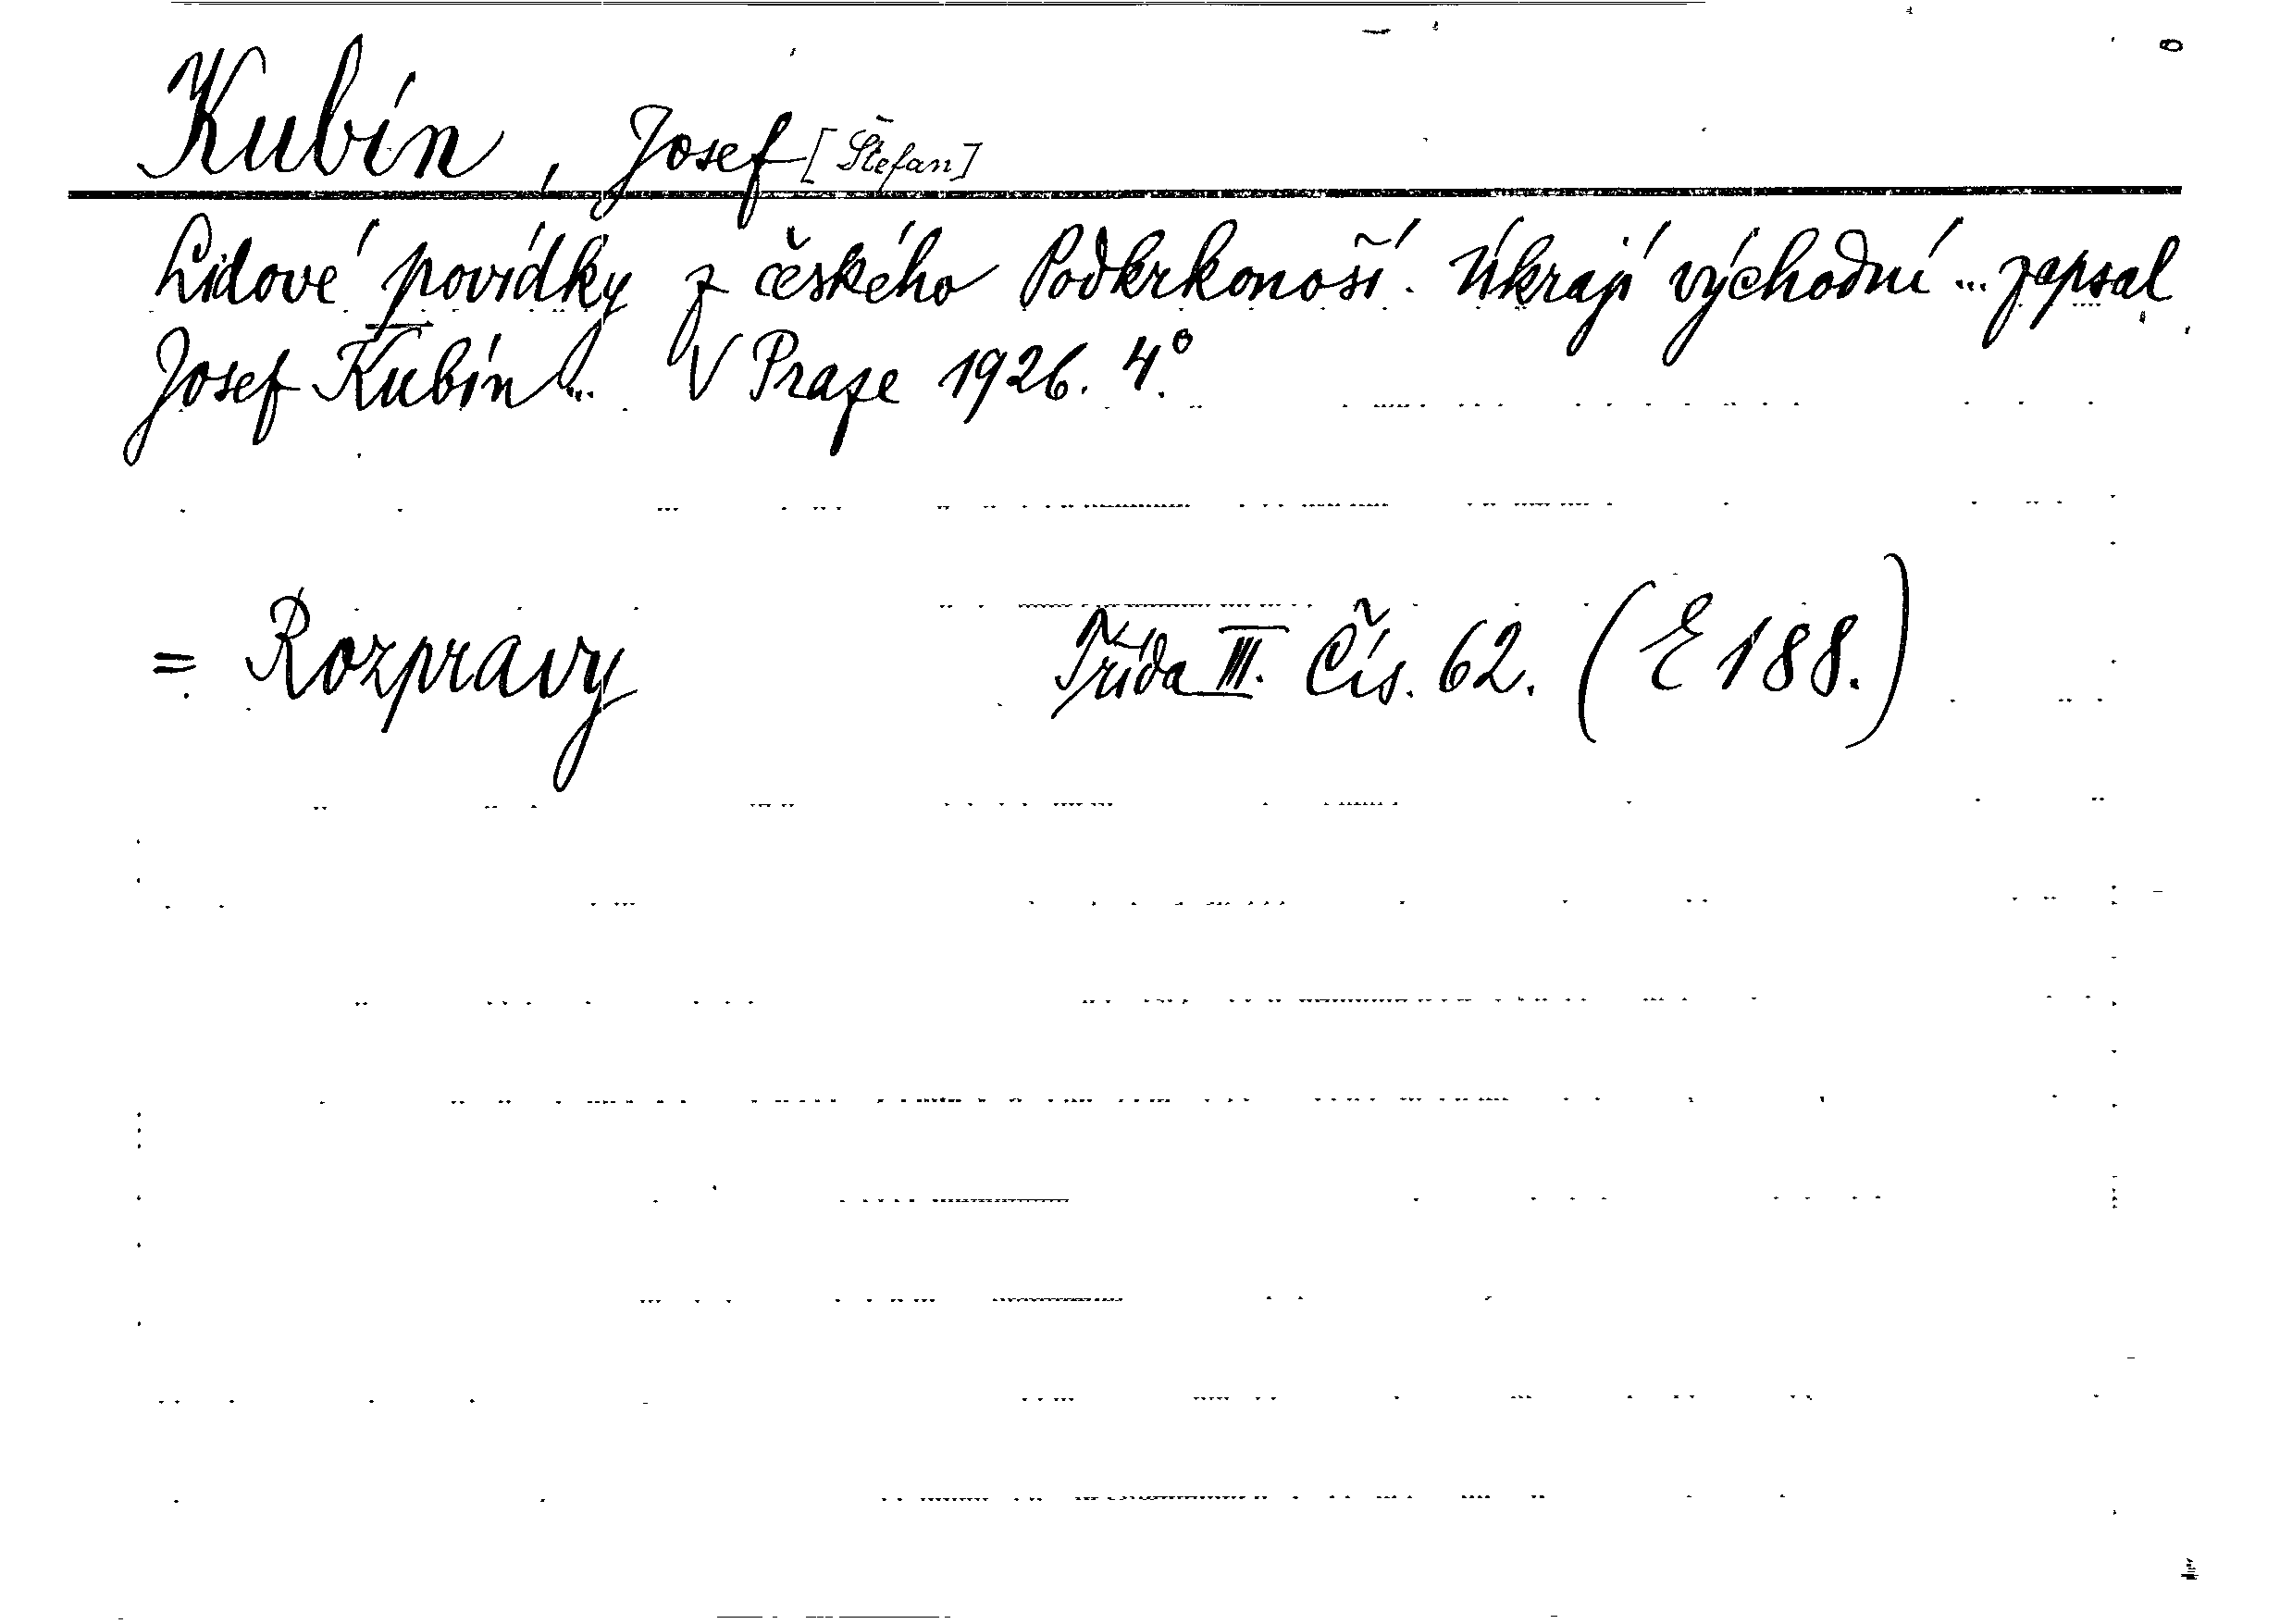 Kubín, Josef [Štefan]
Lidové povídky z českého Podkrkonoší. Úkrají východní ... zapsal
Josef Kubín ... V Praze 1926. 4°.
= Rozpravy Třída III. Čís. 62. (E 188.)